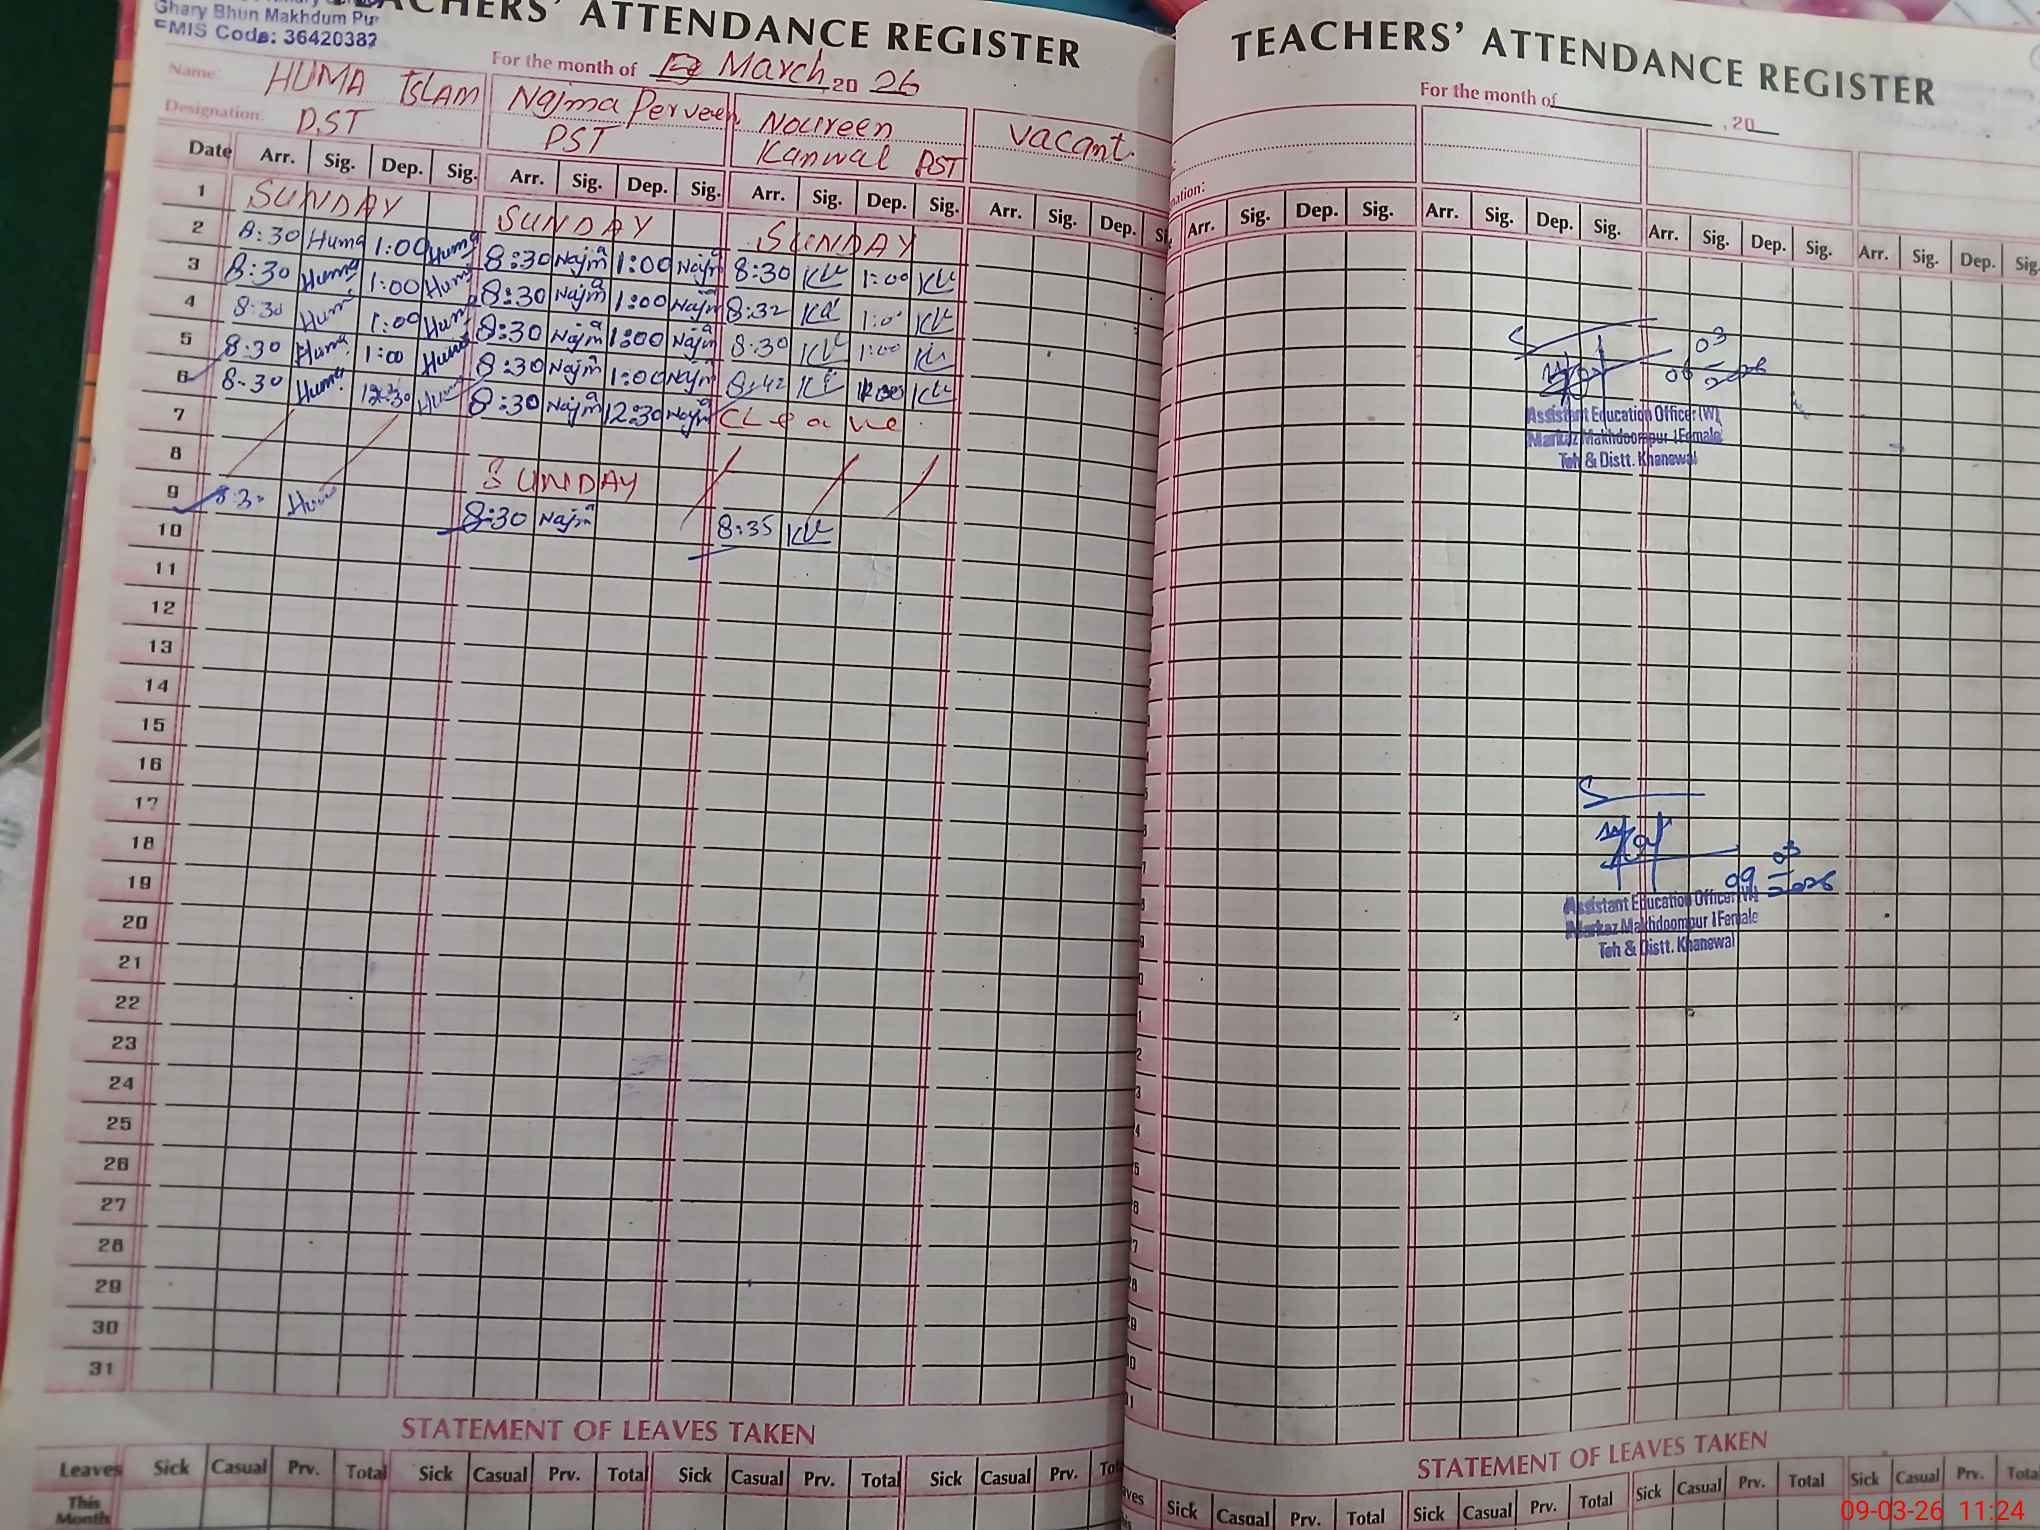 Ghary Bhun Makhdum Pur
EMIS Code: 36420382
TEACHERS' ATTENDANCE REGISTER
For the month of March, 20 26
Name: HUMA ISLAM Najma Perveen Noureen Kanwal vacant.
Designation: PST PST PST
Date Arr. Sig. Dep. Sig. Arr. Sig. Dep. Sig. Arr. Sig. Dep. Sig. Arr. Sig. Dep.
1 SUNDAY SUNDAY SUNDAY
2 8:30 Huma 1:00 Huma 8:30 Najma 1:00 Najma 8:30 KU 1:00 KU
3 8:30 Huma 1:00 Huma 8:30 Najma 1:00 Najma 8:32 KU 1:00 KU
4 8:30 Huma 1:00 Huma 8:30 Najma 1:00 Najma 8:30 KU 1:00 KU
5 8:30 Huma 1:00 Huma 8:30 Najma 1:00 Najma 8:42 KU KU
6 8:30 Huma 12:30 Huma 8:30 Najma 12:30 Najma C Leave
7
8 SUNDAY
9 8:30 Huma 8:30 Najma 8:35 KU
10
11
12
13
14
15
16
17
18
19
20
21
22
23
24
25
26
27
28
29
30
31
STATEMENT OF LEAVES TAKEN
Leaves Sick Casual Prv. Total Sick Casual Prv. Total Sick Casual Prv. Total Sick Casual Prv.
This Month
TEACHERS' ATTENDANCE REGISTER
For the month of , 20
Arr. Sig. Dep. Sig. Arr. Sig. Dep. Sig. Arr. Sig. Dep. Sig. Arr. Sig. Dep. Sig.
06 03 2026
Assistant Education Officer (W)
Markaz Makhdoompur I Female
Teh & Distt. Khanewal
09 03 2026
Assistant Education Officer (W)
Markaz Makhdoompur I Female
Teh & Distt. Khanewal
STATEMENT OF LEAVES TAKEN
Sick Casual Prv. Total Sick Casual Prv. Total Sick Casual Prv. Total Sick Casual Prv. Total
09-03-26 11:24